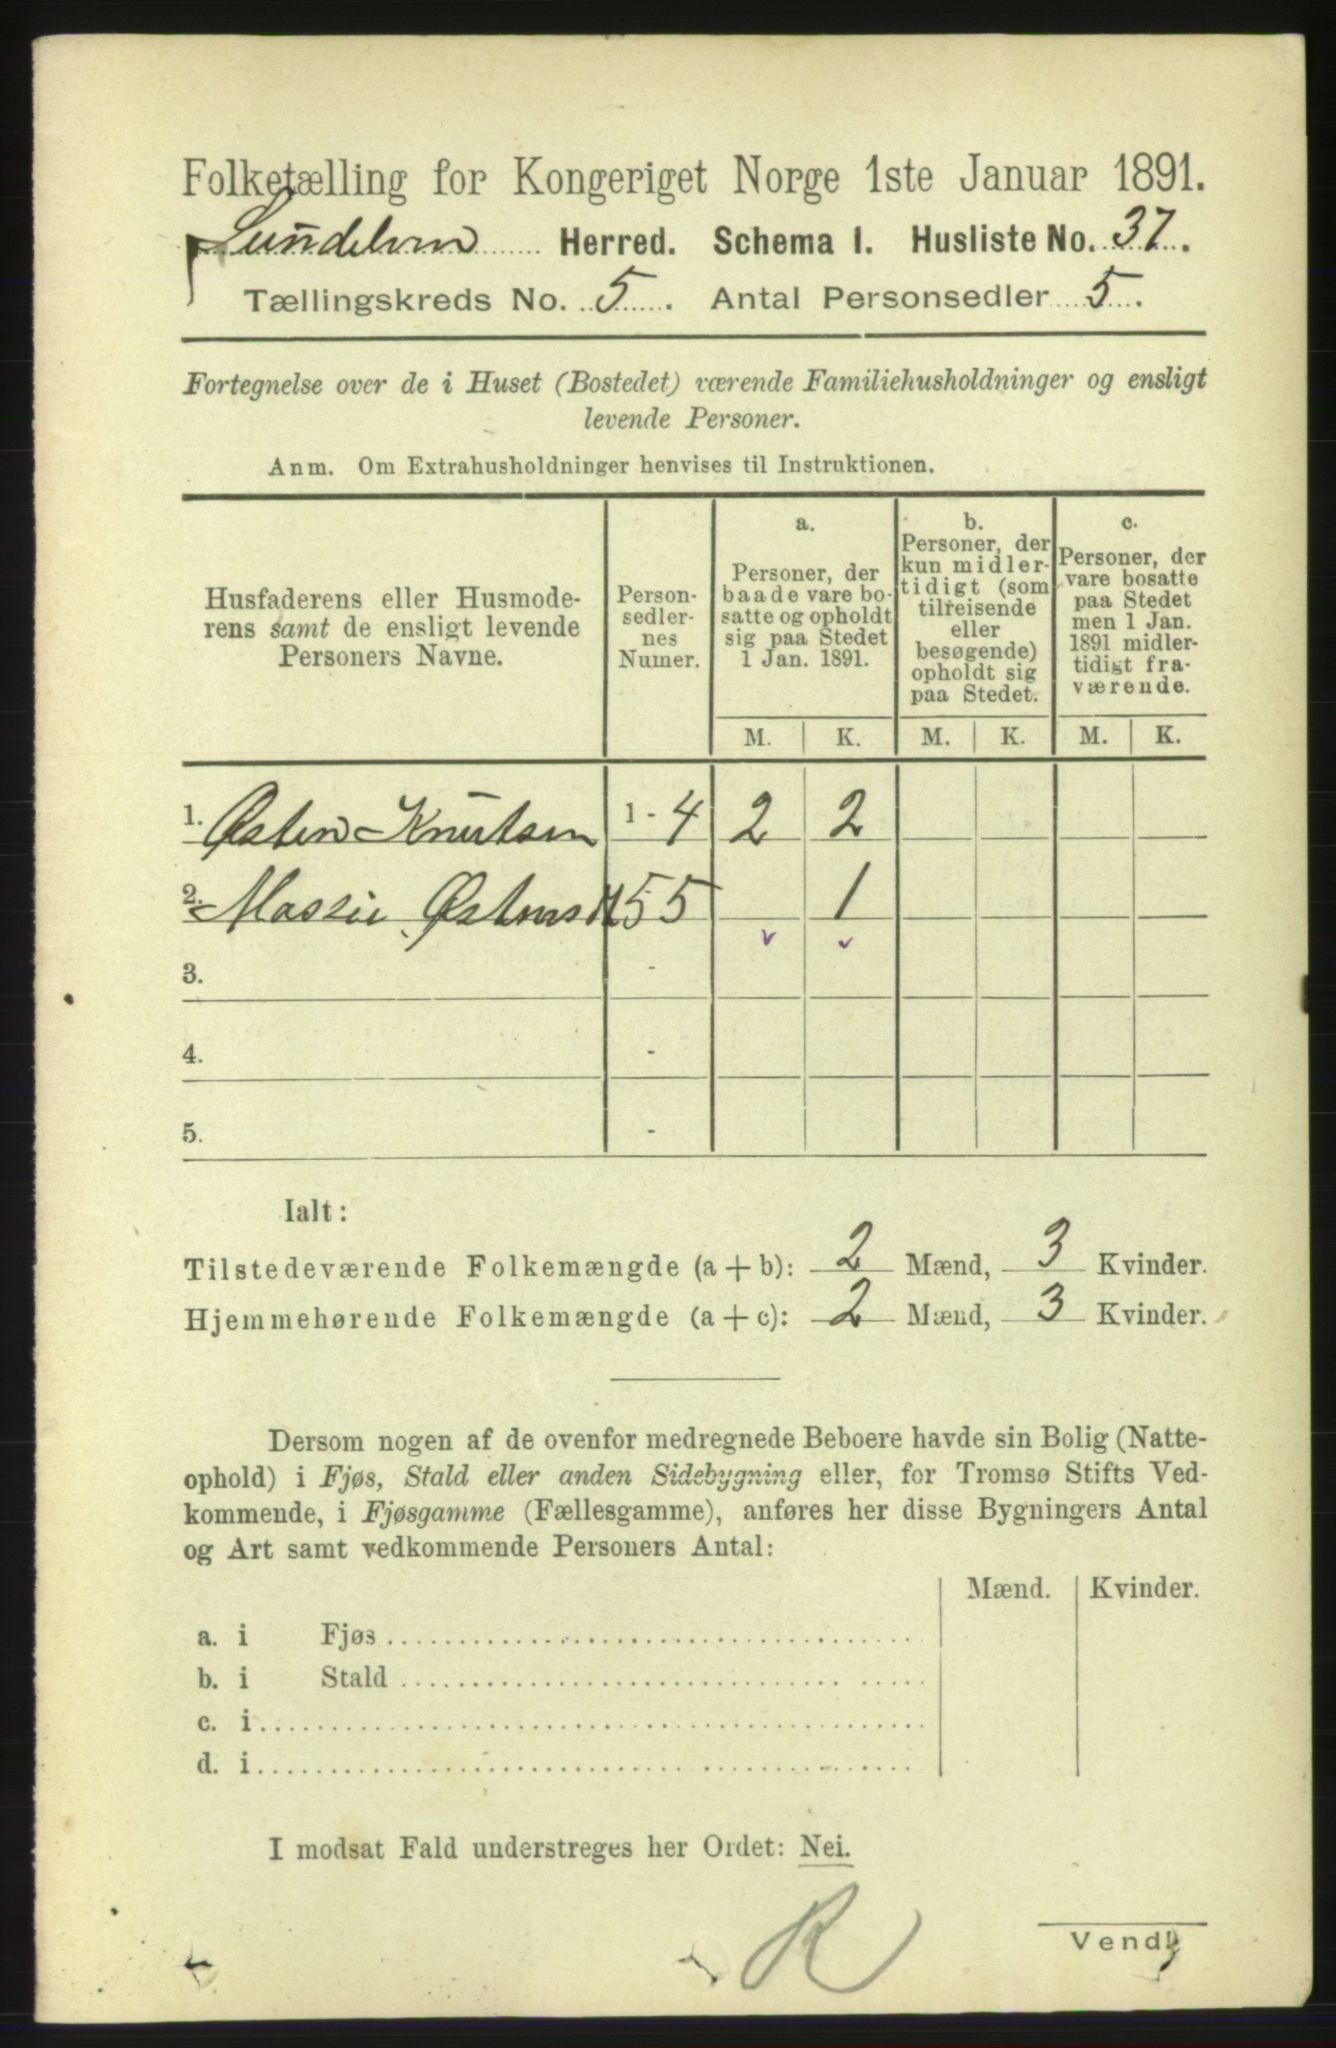 Folketælling for Kongeriget Norge 1ste Januar 1891.
Herred. Schema I. Husliste No. 37.
Tællingskreds No. 5. Antal Personsedler 5.
Fortegnelse over de i Huset (Bostedet) værende Familiehusholdninger og ensligt
levende Personer.
Anm. Om Extrahusholdninger henvises til Instruktionen.
Husfaderens eller Husmode-
rens samt de ensligt levende
Personers Navne.
Person-
sedler-
nes
Numer.
a.
Personer, der
baade vare bo-
satte og opholdt
sig paa Stedet
1 Jan. 1891.
b.
Personer, der
kun midler-
tidigt (som
tilreisende
eller
besøgende)
opholdt sig
paa Stedet.
c.
Personer, der
vare bosatte
paa Stedet
men 1 Jan.
1891 midler-
tidigt fra-
værende.
M. K. M. K. M. K.
1. Østen Knutsen 1 - 4 2 2
2. 5 5 1
3. -
4. -
5. -
Ialt:
Tilstedeværende Folkemængde (a + b): 2 Mænd, 3 Kvinder.
Hjemmehørende Folkemængde (a + c): 2 Mænd, 3 Kvinder.
Dersom nogen af de ovenfor medregnede Beboere havde sin Bolig (Natte-
ophold) i Fjøs, Stald eller anden Sidebygning eller, for Tromsø Stifts Ved-
kommende, i Fjøsgamme (Fællesgamme), anføres her disse Bygningers Antal
og Art samt vedkommende Personers Antal:
Mænd. Kvinder.
a. i Fjøs
b. i Stald
c. i
d. i
I modsat Fald understreges her Ordet: Nei.
R
Vend!